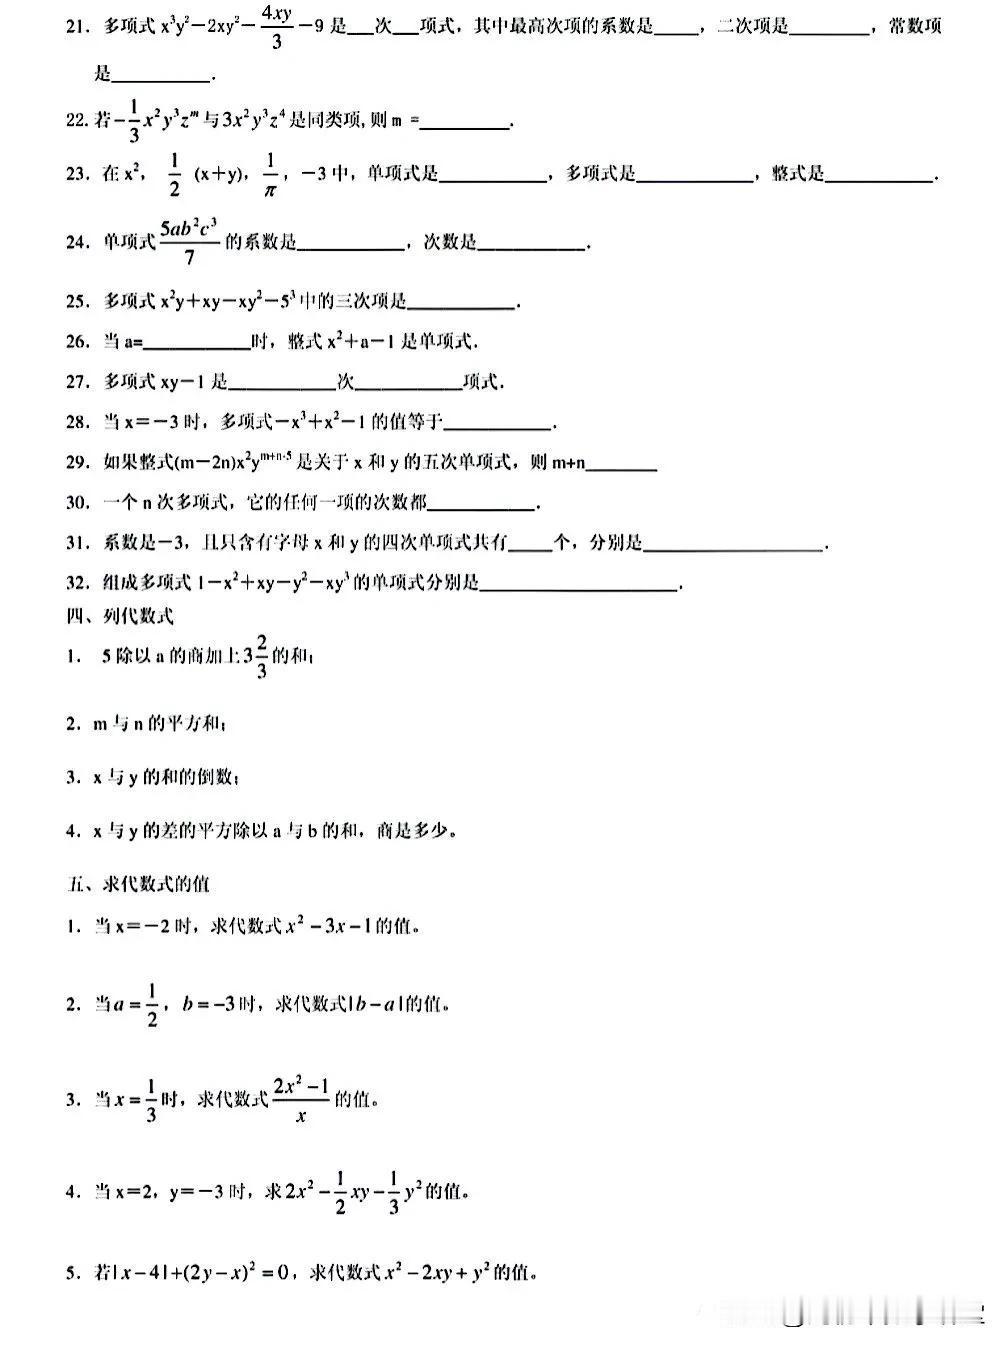 21. 多项式 x³y²－2xy²－4xy/3－9 是___次___项式，其中最高次项的系数是_____，二次项是_________，常数项
是___________.
22. 若－1/3x²y³zᵐ与3x²y³z⁴是同类项,则 m =__________.
23. 在 x²， 1/2 (x＋y)， 1/π，－3 中，单项式是____________，多项式是_____________，整式是____________.
24. 单项式 5ab²c³/7 的系数是____________，次数是____________.
25. 多项式 x²y＋xy－xy²－5³中的三次项是____________.
26. 当 a=____________时，整式 x²＋a－1 是单项式.
27. 多项式 xy－1 是____________次____________项式.
28. 当 x＝－3 时，多项式－x³＋x²－1 的值等于____________.
29. 如果整式(m－2n)x²yᵐ⁺ⁿ⁻⁵是关于 x 和 y 的五次单项式，则 m+n________
30. 一个 n 次多项式，它的任何一项的次数都____________.
31. 系数是－3，且只含有字母 x 和 y 的四次单项式共有_____个，分别是____________________.
32. 组成多项式 1－x²＋xy－y²－xy³的单项式分别是______________________.
四、列代数式
1. 5 除以 a 的商加上 3 2/3 的和；
2. m 与 n 的平方和；
3. x 与 y 的和的倒数；
4. x 与 y 的差的平方除以 a 与 b 的和，商是多少。
五、求代数式的值
1. 当 x＝－2 时，求代数式 x²－3x－1的值。
2. 当a＝1/2，b＝－3时，求代数式|b－a|的值。
3. 当x＝1/3时，求代数式 2x²－1/x 的值。
4. 当 x＝2，y＝－3 时，求 2x²－1/2xy－1/3y²的值。
5. 若|x－4|+(2y－x)²＝0，求代数式 x²－2xy＋y²的值。